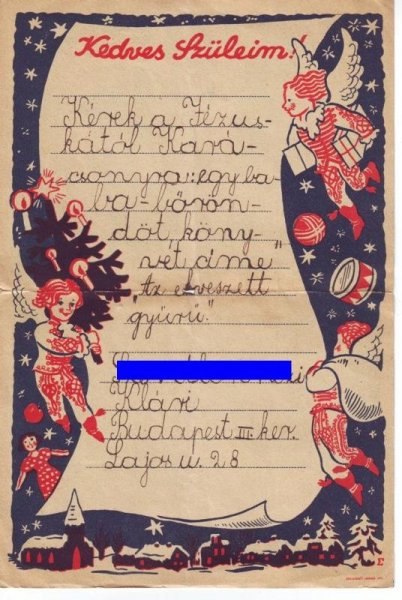 Kedves Szüleim!
Kérek a Jézus-
kától Kará-
csonyra: egy ba-
ba-bőrön-
döt, köny-
vet, címe"
"Az elveszett
gyűrű".
Klári
Budapest III. ker.
Lajos u. 28